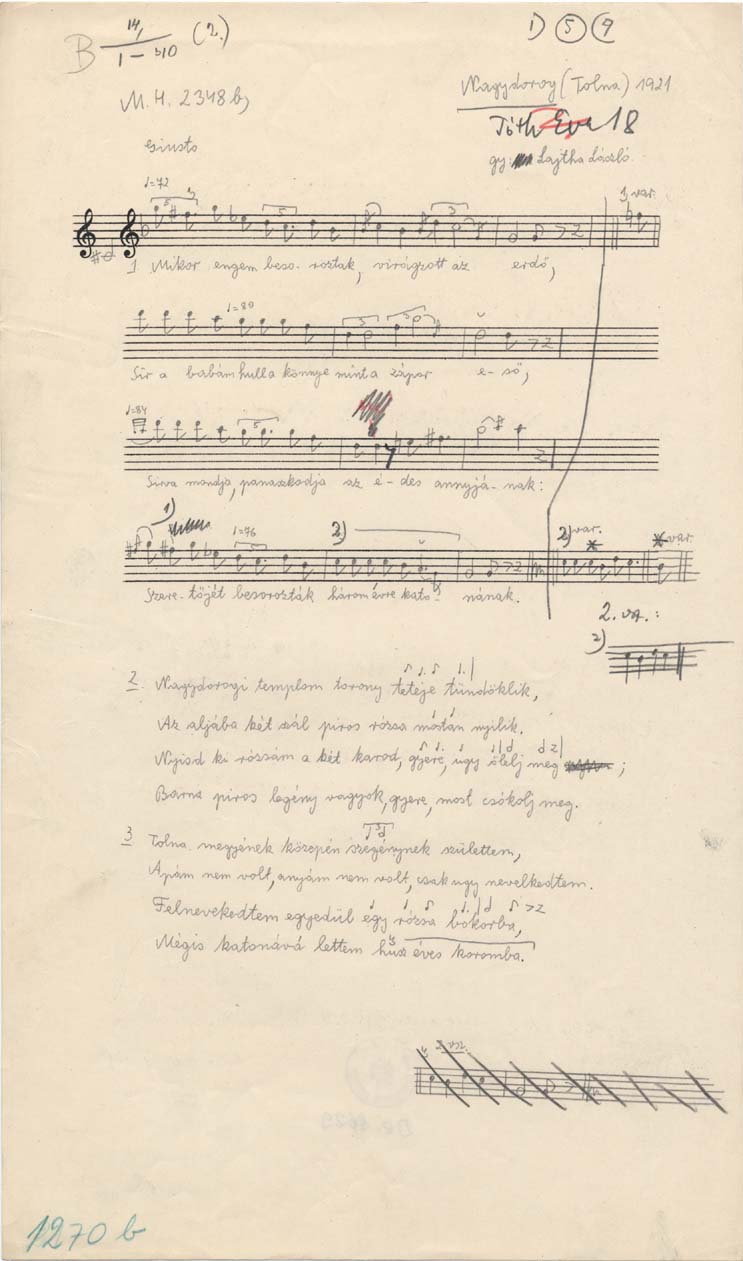 B 14/ I – 310 (2.)
1) 5 9
M. H. 2348 b,
Nagydorog (Tolna) 1921
Tóth Éva 18
gy: Lajtha László.
Giusto
♩=72
1, var.
1 Mikor engem beso- roztak, virágzott az erdő,
♩=80
Sír a babám hulla könnye mint a zápor e- ső,
♩=84
Sírva mondja, panaszkodja az é- des annyjá- nak:
1)
♩=76
2)
2) var.
* var.
Szere- tőjét besorozták három évre kato- nának.
2. vsz.:
2)
2. Nagydorogi templom torony teteje tündöklik,
Az aljába két szál piros rózsa mostan nyílik.
Nyisd ki rózsám a két karod, gyere, úgy ölelj meg ;
Barna piros legény vagyok, gyere, most csókolj meg.
3 Tolna megyének közepén szegénynek születtem,
Apám nem volt, anyám nem volt, csak úgy nevelkedtem.
Felnevekedtem egyedül egy rózsa bokorba,
Mégis katonává lettem húsz éves koromba.
1270 b